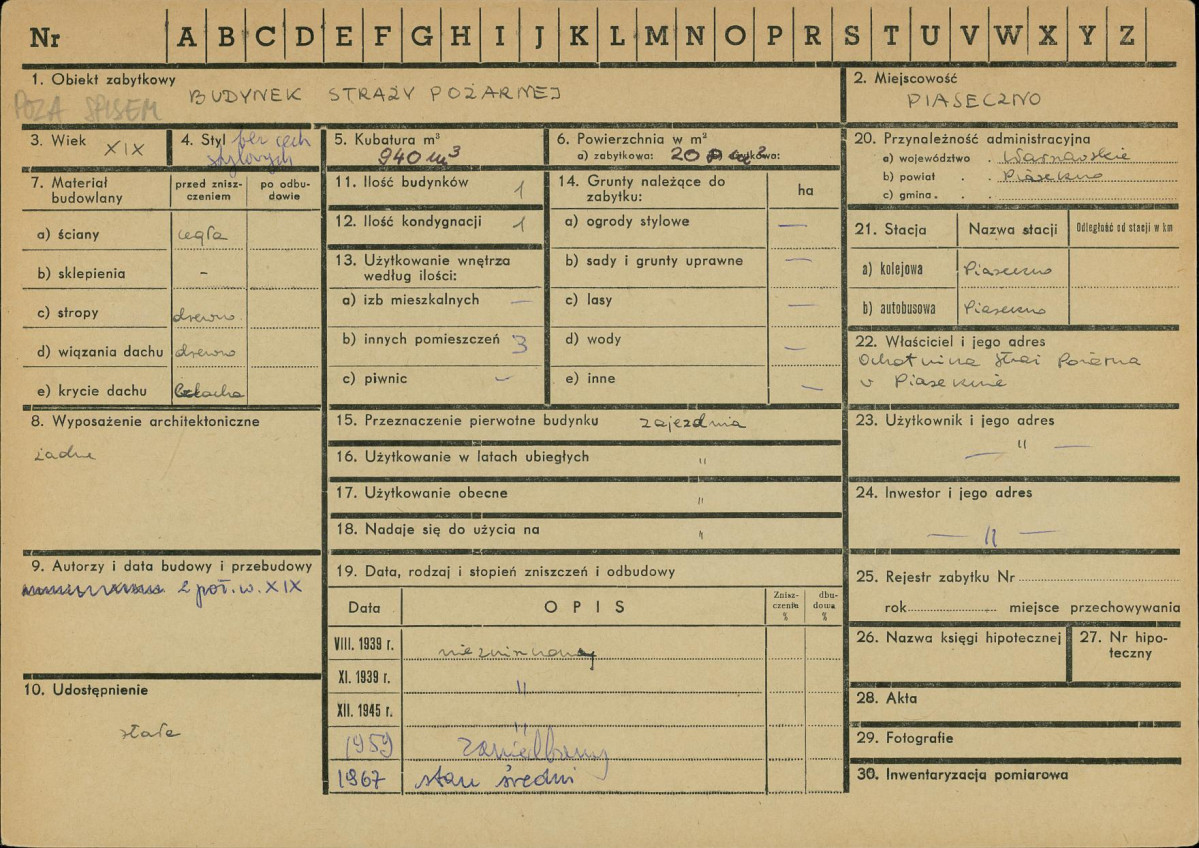 Nr A B C D E F G H I J K L M N O P R S T U V W X Y Z
1. Obiekt zabytkowy
POZA SPISEM
BUDYNEK STRAŻY POŻARNEJ
2. Miejscowość
PIASECZNO
3. Wiek XIX
4. Styl bez cech
stylowych
5. Kubatura m³
940 m³
6. Powierzchnia w m²
a) zabytkowa: 200 m²
7. Materiał
budowlany
przed znisz-
czeniem
po odbu-
dowie
a) ściany cegła
b) sklepienia -
c) stropy drewno
d) wiązania dachu drewno
e) krycie dachu blacha
8. Wyposażenie architektoniczne
żadne
9. Autorzy i data budowy i przebudowy
2 poł. w. XIX
10. Udostępnienie
stałe
11. Ilość budynków 1
12. Ilość kondygnacji 1
13. Użytkowanie wnętrza
według ilości:
a) izb mieszkalnych —
b) innych pomieszczeń 3
c) piwnic —
14. Grunty należące do
zabytku:
ha
a) ogrody stylowe —
b) sady i grunty uprawne —
c) lasy —
d) wody —
e) inne —
15. Przeznaczenie pierwotne budynku zajezdnia
16. Użytkowanie w latach ubiegłych "
17. Użytkowanie obecne "
18. Nadaje się do użycia na "
19. Data, rodzaj i stopień zniszczeń i odbudowy
Data
OPIS
Znisz-
czenia
%
dbu-
dowa
%
VIII. 1939 r. niezniszczony
XI. 1939 r. "
XII. 1945 r. "
1959 zaniedbany
1967 stan średni
20. Przynależność administracyjna
a) województwo . Warszawskie
b) powiat . . Piaseczno
c) gmina . .
21. Stacja
Nazwa stacji
Odległość od stacji w km
a) kolejowa Piaseczno
b) autobusowa Piaseczno
22. Właściciel i jego adres
Ochotnicza Straż Pożarna
w Piasecznie
23. Użytkownik i jego adres
— " —
24. Inwestor i jego adres
— " —
25. Rejestr zabytku Nr
rok miejsce przechowywania
26. Nazwa księgi hipotecznej
27. Nr hipo-
teczny
28. Akta
29. Fotografie
30. Inwentaryzacja pomiarowa